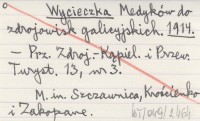 Wycieczka Medyków do
zdrojowisk galicyjskich. 1914.
— Prz. Zdroj.-Kąpiel. i Przew.
Turyst. 13, nr 3.
M. in. Szczawnica, Krościenko
i Zakopane.